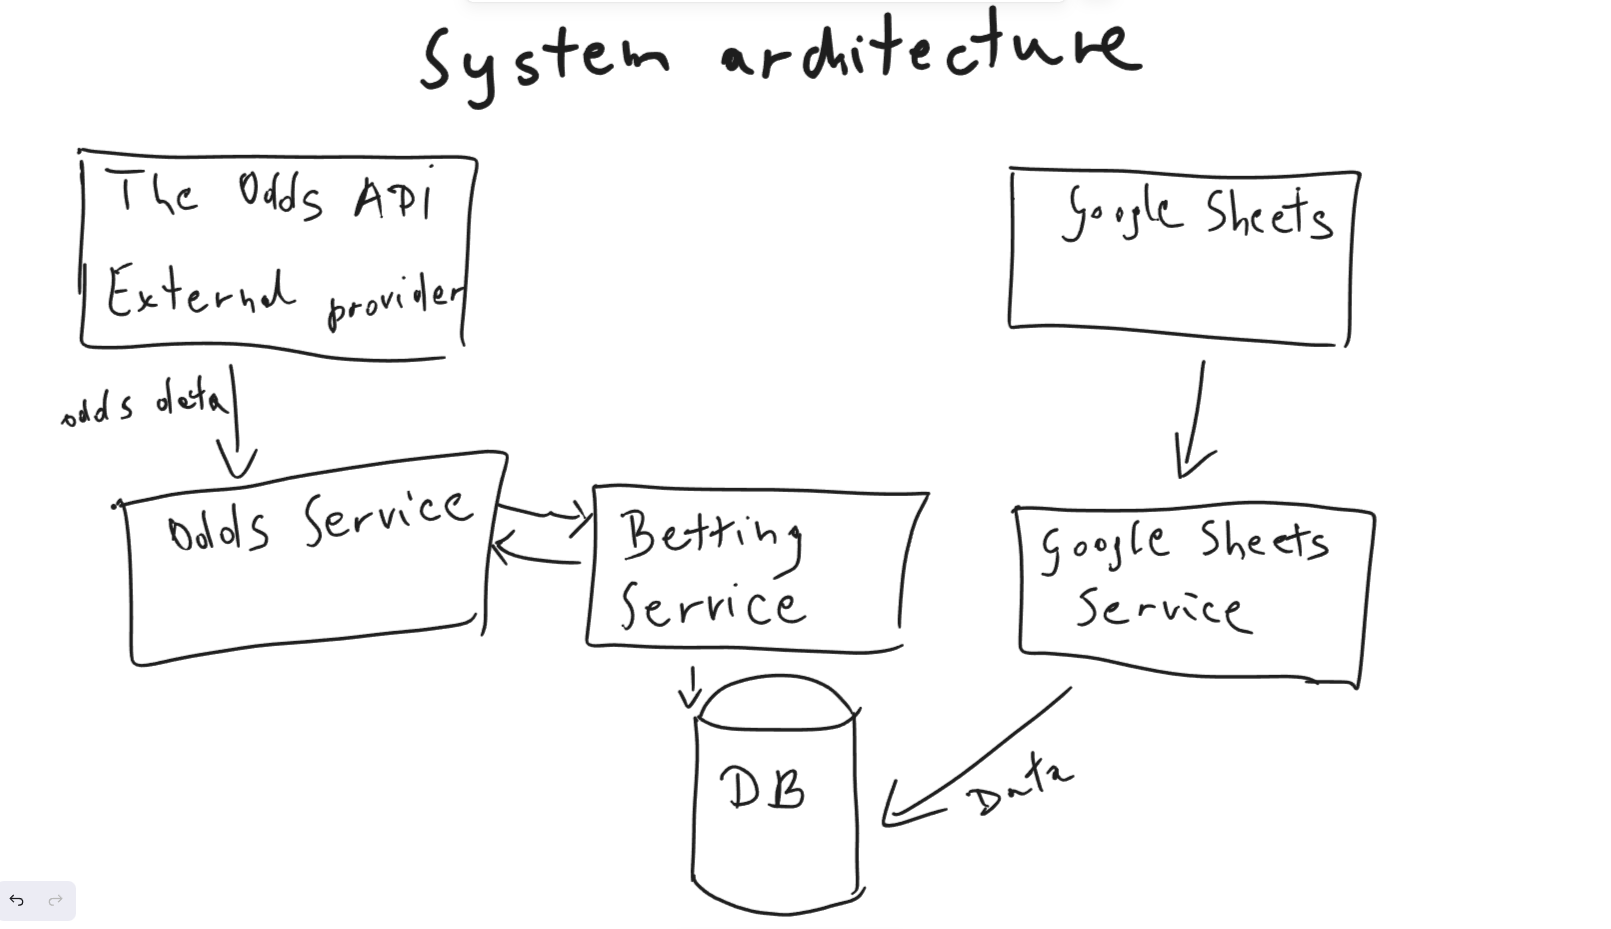 System architecture
The Odds API
External provider
Google Sheets
odds data
Odds Service
Betting
Service
Google Sheets
Service
DB
Data